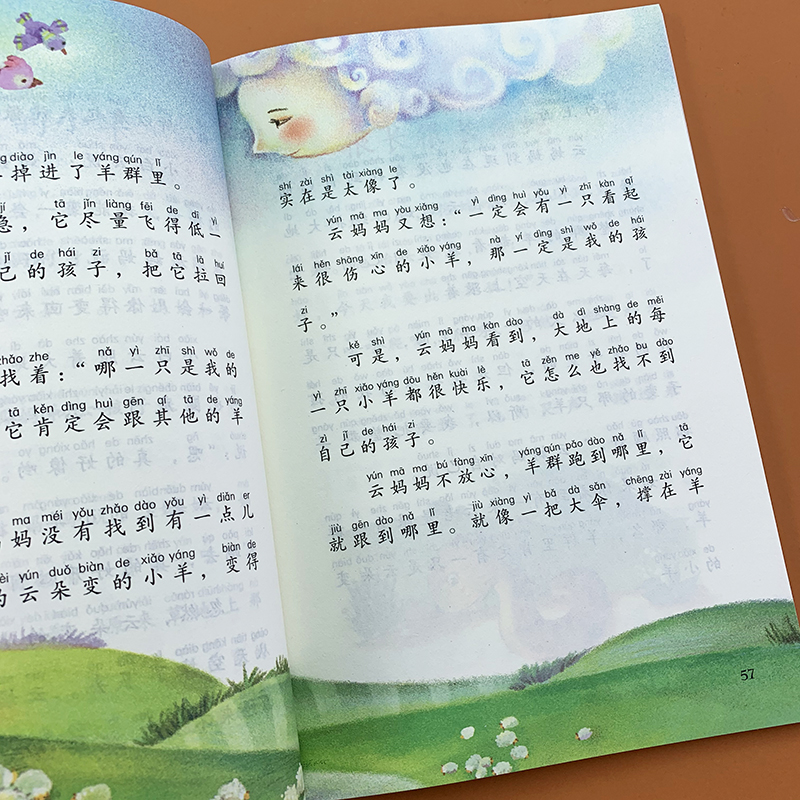 ng diào jìn le yáng qún lǐ
掉进了羊群里。
jí tā jǐn liàng fēi de dī yì
急，它尽量飞得低一
jǐ de hái zi bǎ tā lā huí
己的孩子，把它拉回
zhǎo zhe nǎ yì zhī shì wǒ de
找着：“哪一只是我的
tā kěn dìng huì gēn qí tā de yáng
它肯定会跟其他的羊
ma méi yǒu zhǎo dào yǒu yì diǎn er
妈没有找到有一点儿
yún duǒ biàn de xiǎo yáng biàn de
的云朵变的小羊，变得
shí zài shì tài xiàng le
实在是太像了。
yún mā ma yòu xiǎng yí dìng huì yǒu yì zhī kàn qǐ
云妈妈又想：“一定会有一只看起
lái hěn shāng xīn de xiǎo yáng nà yí dìng shì wǒ de hái
来很伤心的小羊，那一定是我的孩
zi
子。”
kě shì yún mā ma kàn dào dà dì shàng de měi
可是，云妈妈看到，大地上的每
yì zhī xiǎo yáng dōu hěn kuài lè tā zěn me yě zhǎo bu dào
一只小羊都很快乐，它怎么也找不到
zì jǐ de hái zi
自己的孩子。
yún mā ma bú fàng xīn yáng qún pǎo dào nǎ lǐ tā
云妈妈不放心，羊群跑到哪里，它
jiù gēn dào nǎ lǐ jiù xiàng yì bǎ dà sǎn chēng zài yáng
就跟到哪里。就像一把大伞，撑在羊
57